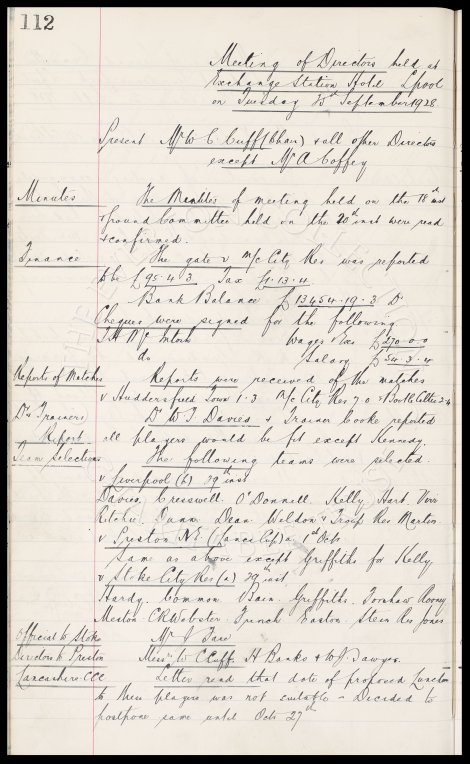 112
Meeting of Directors held at
Exchange Station Hotel L'pool
on Tuesday 25th September 1928
Present Mr W. C. Cuff (Chair) & all other Directors
except Mr A Coffey
Minutes The Minutes of meeting held on the 18th inst
& Ground Committee held on the 20th inst were read
& confirmed.
Finance The gate v M/c City Res was reported
to be £95.4.3 Tax £1.13.4
Bank Balance £13454.19.3 Dr
Cheques were signed for the following
Wages & Tax £270.0.0
do Salary £54.3.4
Reports of Matches Reports were received of the matches
v Huddersfield Town 1.3 M/c City Res 7.0
Drs & Trainers Dr W J Davies & Trainer Cooke reported
Report all players would be fit except Kennedy.
Team Selections The following teams were selected.
v Liverpool (h) 29th inst
Davies, Cresswell O'Donnell. Kelly Hart Virr
Ritchie. Dunn Dean Weldon & Troup Res Martin
v Preston N.E. (Lancs Cup) a 1st Oct
Same as above except Griffiths for Kelly.
v Stoke City Res (a) 29 inst
Hardy. Common Bain. Griffiths. Rooney
Meston CR Webster. French Easton. Stein Res Jones
Official to Stoke Mr J
Directors to Preston Messrs W C Cuff. H Banks & W J Sawyer.
Lancashire CCC Letter read that date of proposed Luncheon
to these players was not suitable - Decided to
postpone same until Oct 27th